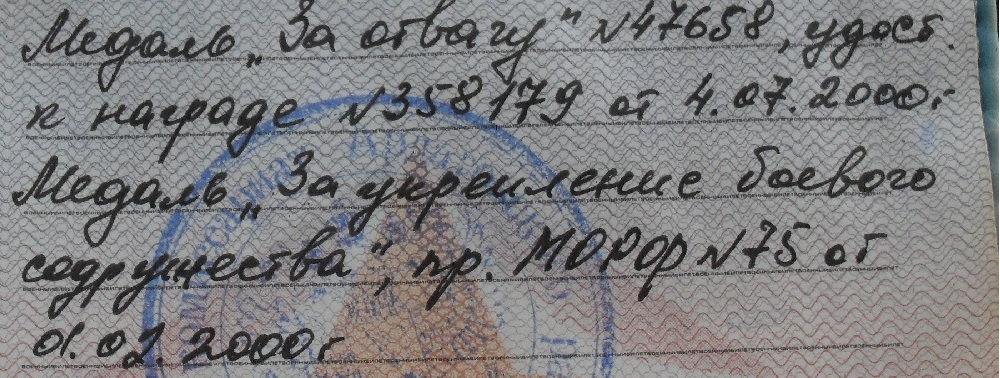 Медаль „За отвагу“ №47658, удост.
к награде №358179 от 4.07.2000г
Медаль „За укрепление боевого
содружества“, пр. МОРФ №75 от
01.02.2000г